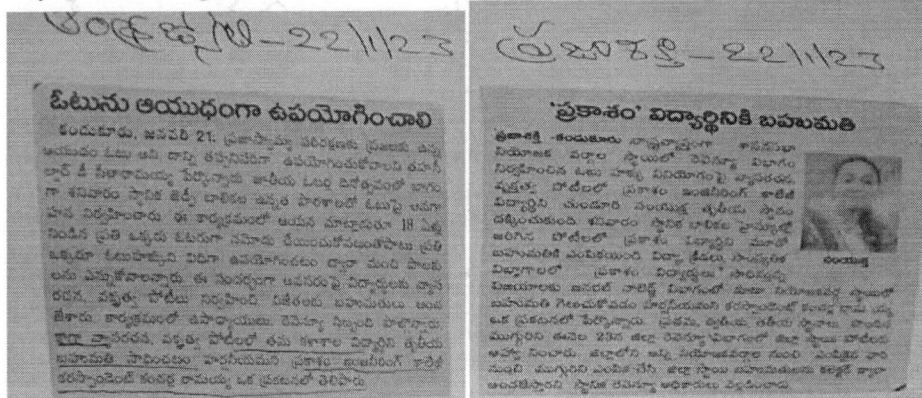 ఆంధ్రజ్యోతి - 22/1/23
ఓటును ఆయుధంగా ఉపయోగించాలి
కందుకూరు, జనవరి 21: ప్రజాస్వామ్య పరిరక్షణకు ప్రజలకు ఉన్న
ఆయుధం ఓటు అని దాన్ని తప్పనిసరిగా ఉపయోగించుకోవాలని తహసీ
ల్దార్ డీ సీతారామయ్య పేర్కొన్నారు. జాతీయ ఓటర్ల దినోత్సవంలో భాగం
గా శనివారం స్థానిక జడ్పీ బాలికల ఉన్నత పాఠశాలలో ఓటుపై అవగా
హన నిర్వహించారు. ఈ కార్యక్రమంలో ఆయన మాట్లాడుతూ 18 ఏళ్లు
నిండిన ప్రతి ఒక్కరు ఓటరుగా నమోదు చేయించుకోవటంతోపాటు ప్రతి
ఒక్కరూ ఓటుహక్కుని విధిగా ఉపయోగించటం ద్వారా మంచి పాలకు
లను ఎన్నుకోవాలన్నారు. ఈ సందర్భంగా విద్యార్థులకు వ్యాస
రచన, వక్తృత్వ పోటీలు నిర్వహించి విజేతలకు బహుమతులు అంద
జేశారు. కార్యక్రమంలో ఉపాధ్యాయులు, రెవెన్యూ సిబ్బంది పాల్గొన్నారు.
కాగా వ్యాసరచన, వక్తృత్వ పోటీలలో తమ కళాశాల విద్యార్థిని తృతీయ
బహుమతి సాధించటం హర్షనీయమని ప్రకాశం ఇంజనీరింగ్ కాలేజీ
కరస్పాండెంట్ కంచర్ల రామయ్య ఒక ప్రకటనలో తెలిపారు.
ప్రజాశక్తి - 22/1/23
'ప్రకాశం' విద్యార్థినికి బహుమతి
ప్రజాశక్తి -కందుకూరు రాష్ట్రవ్యాప్తంగా శాసనసభా
నియోజక వర్గాల స్థాయిలో రెవెన్యూ విభాగం
నిర్వహించిన ఓటు హక్కు వినియోగంపై వ్యాసరచన
వక్తృత్వ పోటీలలో ప్రకాశం ఇంజనీరింగ్ కాలేజీ
విద్యార్థిని చుండూరి సంయుక్త తృతీయ స్థానం
దక్కించుకుంది. శనివారం స్థానిక బాలికల హైస్కూల్లో
జరిగిన పోటీలలో ప్రకాశం విద్యార్థిని మూడో
బహుమతికి ఎంపికయింది. విద్యా, క్రీడలు, సాంస్కృతిక
విభాగాలలో ప్రకాశం విద్యార్థులు సాధిస్తున్న
సంయుక్త
విజయాలకు జనరల్ నాలెడ్జి విభాగంలో కూడా నియోజకవర్గ స్థాయిలో
బహుమతి గెలుచుకోవడం హర్షనీయమని కరస్పాండెంట్ కంచర్ల రామయ్య
ఒక ప్రకటనలో పేర్కొన్నారు. ప్రథమ, ద్వితీయ, తృతీయ స్థానాలు పొందిన
ముగ్గురిని ఈనెల 23న జిల్లా రెవెన్యూ విభాగంలో జిల్లా స్థాయి పోటీలకు
ఆహ్వానించారు. జిల్లాలోని అన్ని నియోజకవర్గాల నుంచి ఎంపికైన వారి
నుండి ముగ్గురిని ఎంపిక చేసి జిల్లా స్థాయి బహుమతులను కలెక్టర్ ద్వారా
అందజేస్తారని స్థానిక రెవెన్యూ అధికారులు వెల్లడించారు.